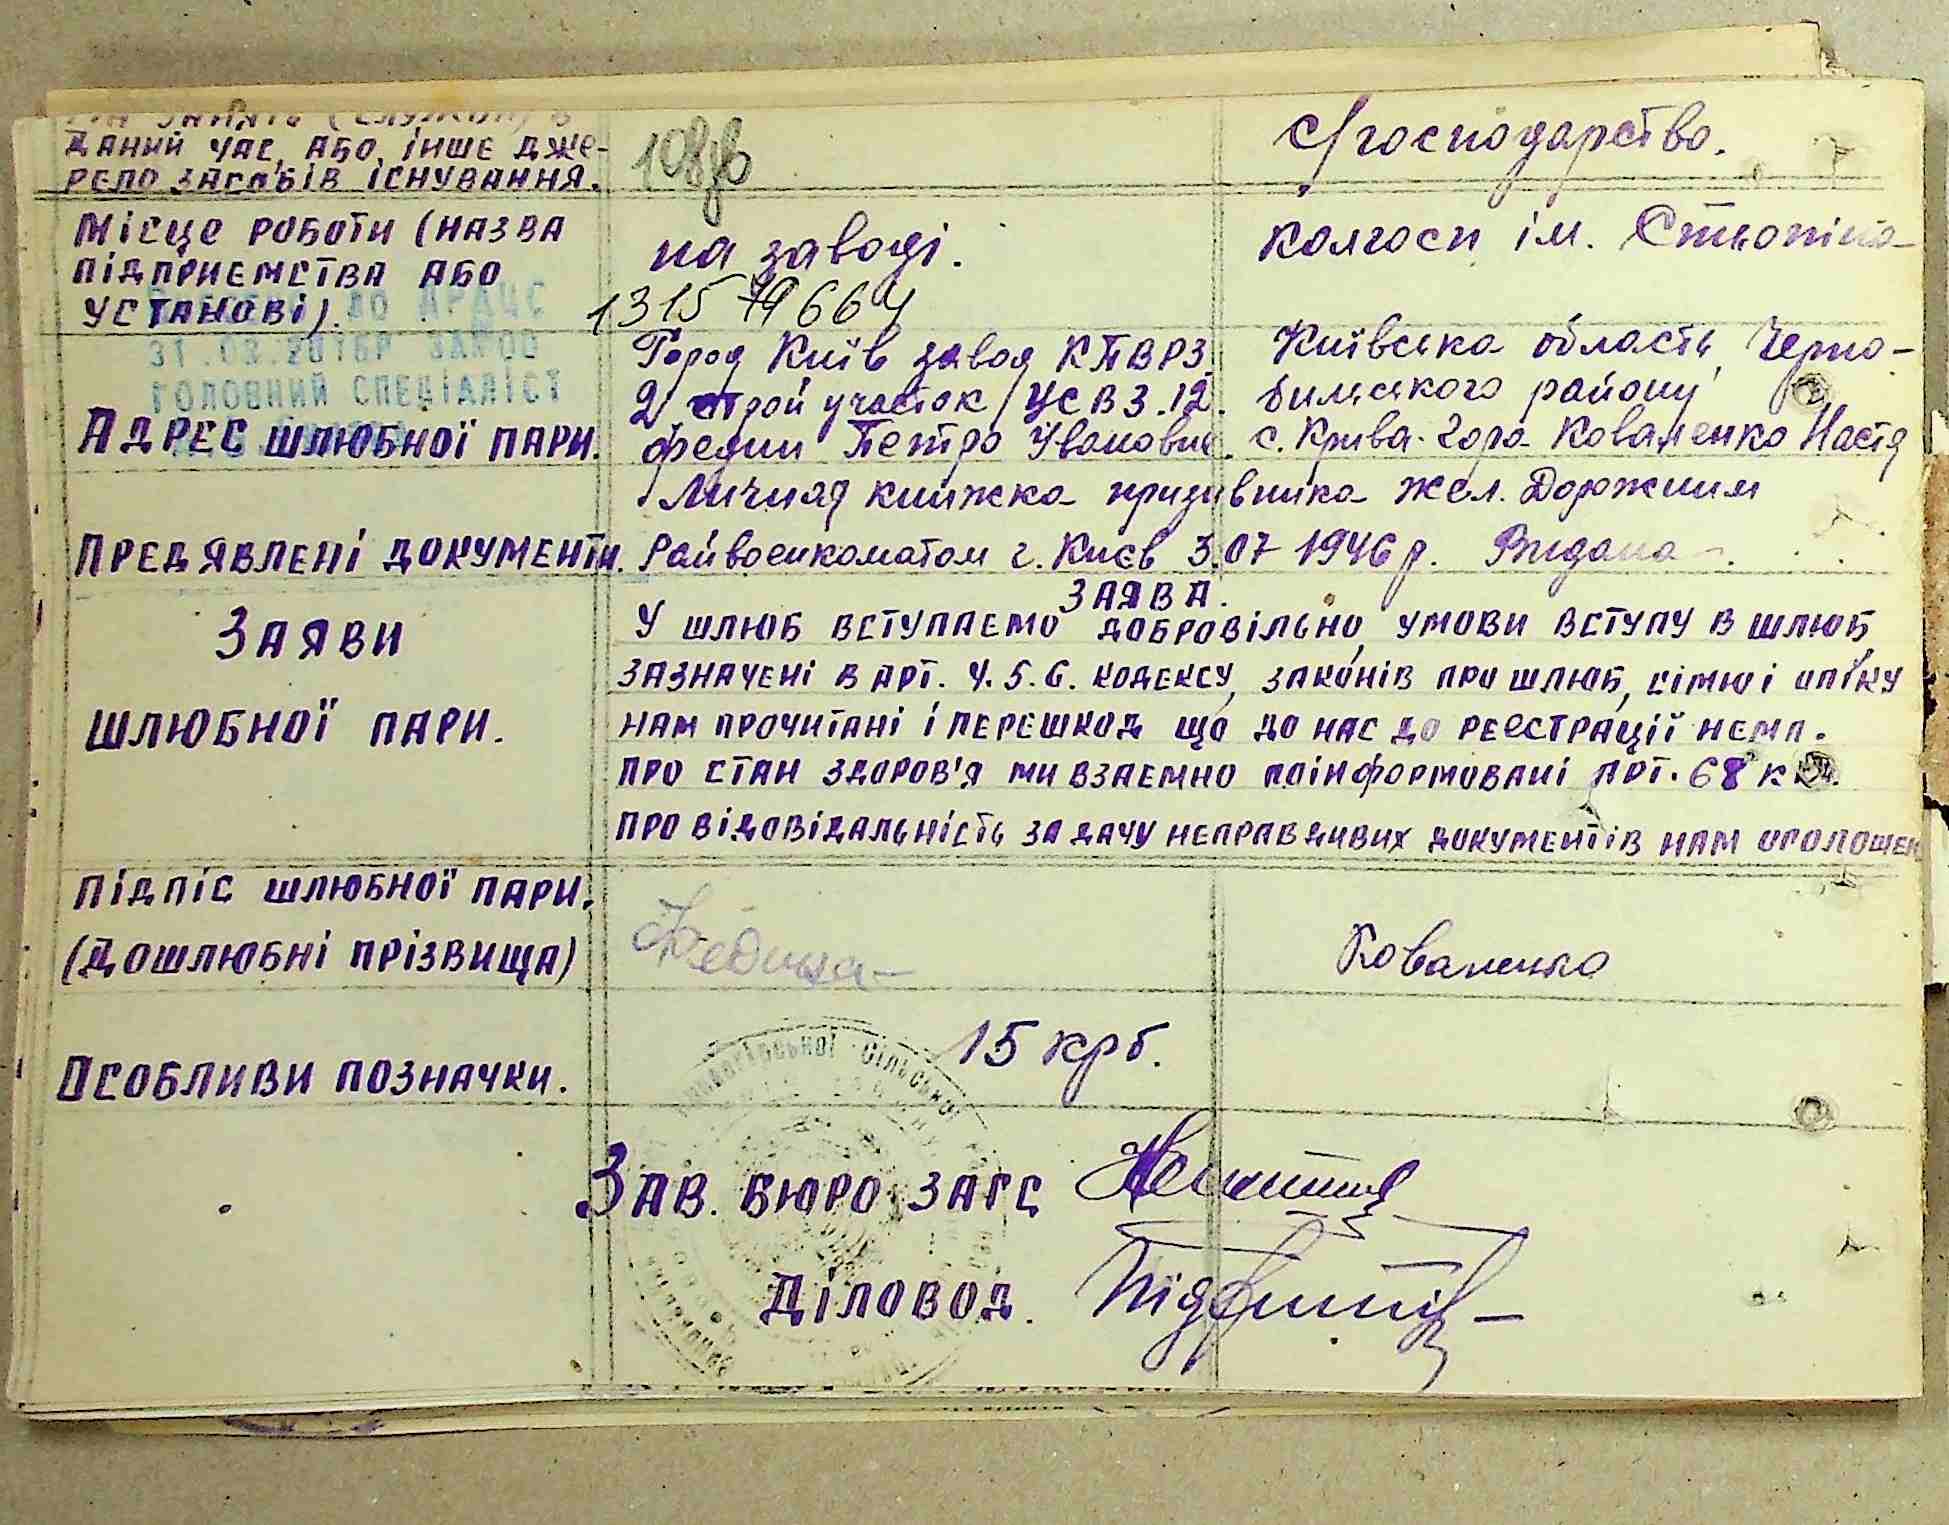 даний час, або інше дже-
рело засобів існування.
с/господарство.
Місце роботи (назва
підприємства або
установі).
на заводі.
колгосп ім.
1315 19664
31.03.2016р
головний спеціаліст
Адрес шлюбної пари.
Город Київ завод КПВРЗ
2 строй участок УСВЗ.12.
Федин Петро Іванович.
Київська область, Черно-
бильського району
с. Крива-Гора Коваленко Настя
Предявлені документи.
Личная книжка призивника жел. Дорожним
Райвоенкоматом г. Києв 3.07 1946 р. Видана
Заяви
шлюбної пари.
Заява.
У шлюб вступаемо добровільно, умови вступу в шлюб,
зазначені в арт. 4.5.6. кодексу, законів про шлюб, сімю і опіку
нам прочитані і перешкод що до нас до реєстрації нема.
про стан здоров'я ми взаемно поінформовані арт. 68
про відовідальність за дачу неправдивих документів нам оголошен
Підпіс шлюбної пари.
(Дошлюбні прізвища)
Коваленко
Особливи позначки.
15 крб.
Зав. бюро ЗАГС
Діловод.